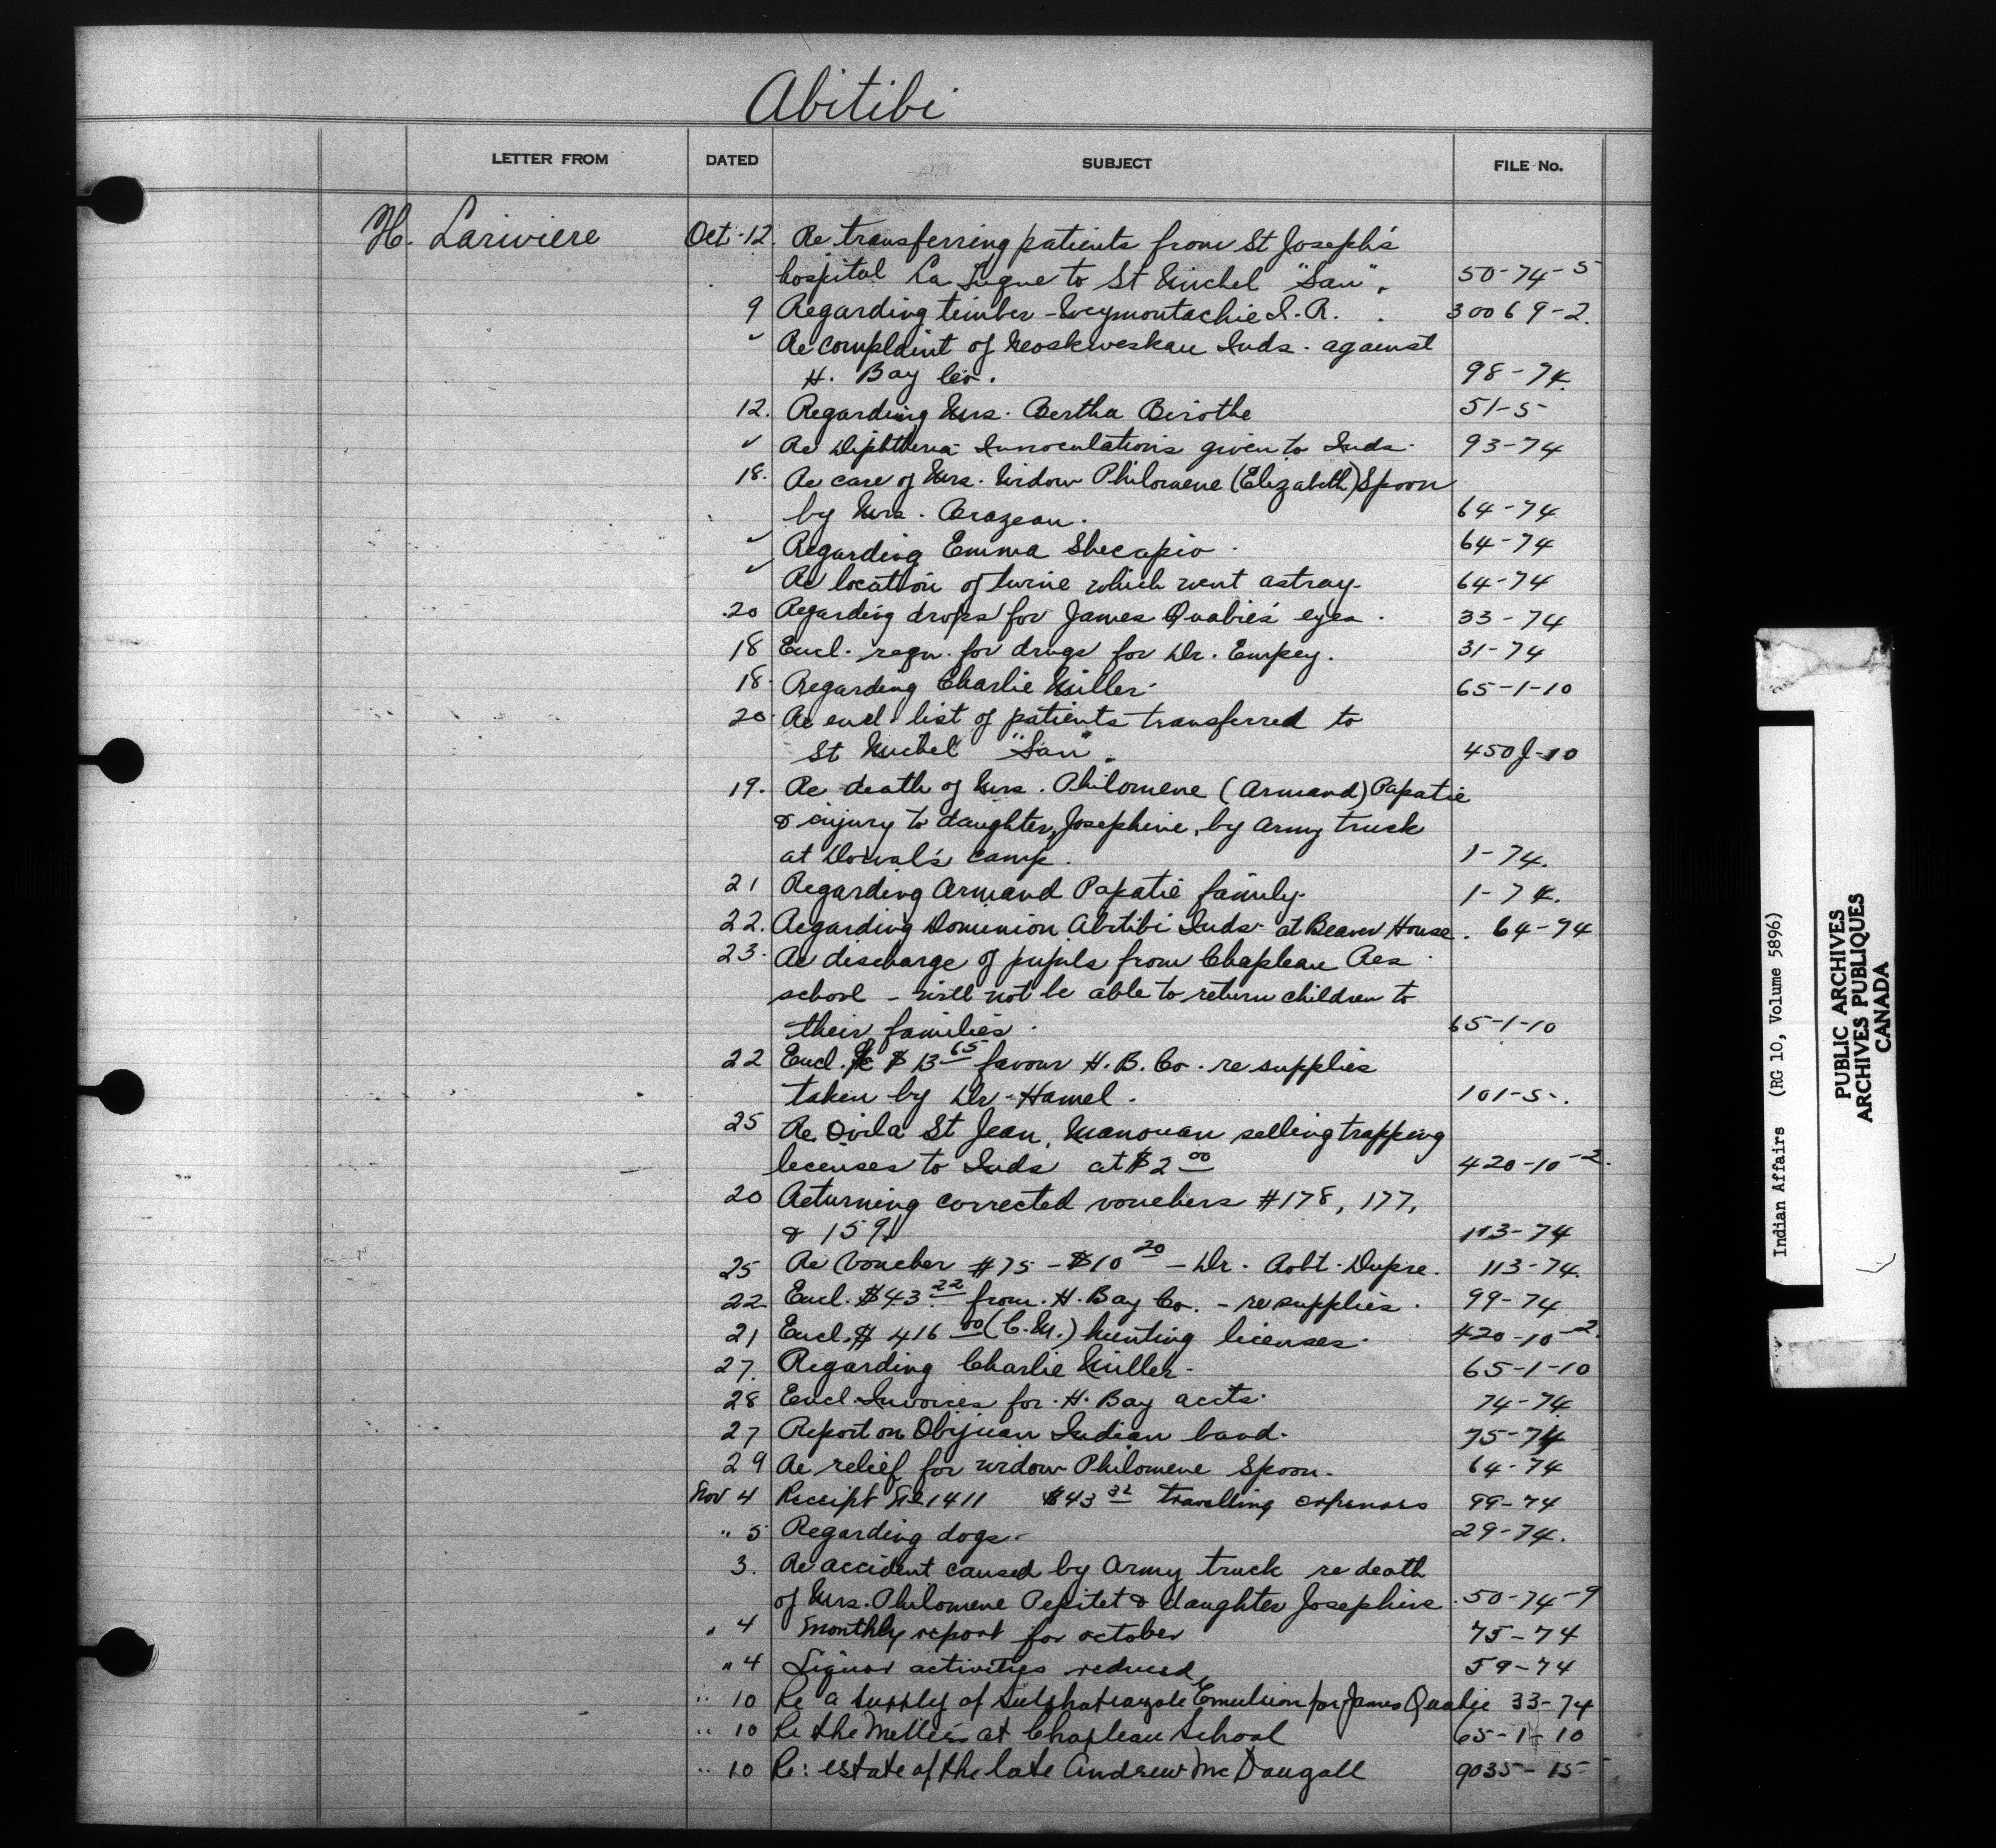 Abitibi
LETTER FROM DATED SUBJECT FILE No.
H. Lariviere Oct-12. Re transferring patients from St Joseph's
hospital La Tuque to St Michel "San". 50-74-5
9 Regarding timber - Weymontachie I.R. 30069-2.
✓ Re complaint of Neoskweskau Inds. against
H. Bay Co. 98-74.
12. Regarding Mrs. Bertha Birothe 51-5
✓ Re Diphtheria Innoculations given to Inds. 93-74
18. Re care of Mrs. Widow Philomene (Elizabeth) Spoon
by Mrs. Brazeau. 64-74
✓ Regarding Emma Shecapio. 64-74
✓ Re location of twine which went astray. 64-74
20 Regarding drops for James Quabie's eyes. 33-74
18 Encl. reqn. for drugs for Dr. Empey. 31-74
18. Regarding Charlie Miller. 65-1-10
20. Re encl. list of patients transferred to
St Michel "San". 450J-10
19. Re death of Mrs. Philomene (Armand) Papatie
& injury to daughter, Josephine, by Army truck
at Dorval's camp. 1-74.
21 Regarding Armand Papatie family. 1-74.
22. Regarding Dominion Abitibi Inds. at Beaver House. 64-74
23. Re discharge of pupils from Chapleau Res.
school - will not be able to return children to
their families. 65-1-10
22 Encl. $13 65 favour H.B. Co. re supplies
taken by Dr. Hamel. 101-5-.
25 Re Ovila St Jean, Manouan selling trapping
licenses to Inds at $2 00 420-10-2.
20 Returning corrected vouchers #178, 177,
& 159. 113-74
25 Re Voucher #75 - $10 20 - Dr. Robt. Dupre. 113-74.
22. Encl. $43 22 from H. Bay Co. - re supplies. 99-74
21 Encl. $416 00 (C.M.) hunting licenses. 420-10-2.
27. Regarding Charlie Miller. 65-1-10
28 Encl Invoices for H. Bay accts. 74-74
27 Report on Obijuan Indian band. 75-74
29 Re relief for widow Philomene Spoon. 64-74
Nov 4 Receipt No 1411 $43 32 travelling expenses 99-74
" 5 Regarding dogs. 29-74.
3. Re accident caused by Army truck re death
of Mrs. Philomene Pepitet & daughter Josephine. 50-74-9
" 4 Monthly report for october 75-74
" 4 Liquor activities reduced 59-74
" 10 Re a supply of sulphathiazole Emulsion for James Quabie 33-74
" 10 Re the Mellers at Chapleau School 65-1-10
" 10 Re: estate of the late Andrew McDougall 9035-15
Indian Affairs (RG 10, Volume 5896)
PUBLIC ARCHIVES
ARCHIVES PUBLIQUES
CANADA